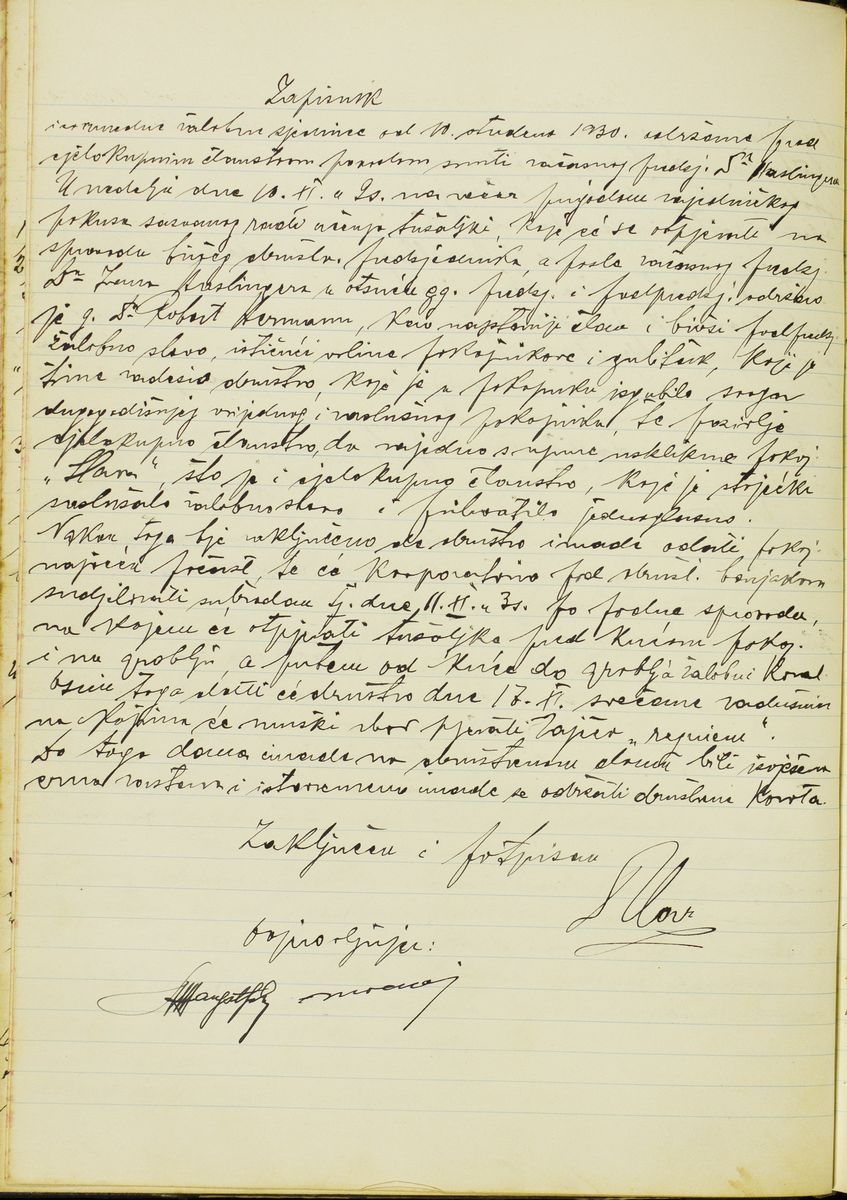 Zapisnik
izvanredne žalobne sjednice od 10. studena 1930. održane pred
cjelokupnim članstvom povodom smrti začasnog predsj. Dr Haslingera
U nedelju dne 10. XI. u 9s. na večer prigodom zajedničkog
pokusa sazvanog radi učenja tužaljki, koje će se otpjevati na
sprovodu bivšeg društv. predsjednika, a posle začasnog predsj.
Dr Ivana Haslingera u otsuću gg. predsj. i podpredsj. održao
je g. Dr Robert Hermann, kao najstariji član i bivši podpredsj.
žalobno slovo, ističući vrline pokojnikove i gubitak, koji je
time zadesio društvo, koje je u pokojniku izgubilo svoga
dugogodišnjeg vrijednog i zaslužnog pokojnika, te poziva
cjelokupno članstvo, da zajedno s njime usklikne pokoj.
„Slava“, što je i cjelokupno članstvo, koje je stojećki
saslušalo žalobno slovo i prihvatilo jednoglasno.
Nakon toga bje zaključeno da društvo imade odati pokoj.
najveću počast, te će korporativno pod društ. barjakom
sudjelovati sutradan tj. dne 11. XI. u 3s. po podne sprovodu,
na kojem će otpjevati tužaljke pred kućom pokoj.
i na groblju, a putem od kuće do groblja žalobni koral.
Osim toga dati će društvo dne 17. XI. svečane zadušnice
na kojima će muški zbor pjevati Zajčev „requiem“.
Do toga dana imade na društvenom domu biti izvješena
crna zastava i istovremeno imade se održati društvena korota.
Zaključeno i potpisano
Ovjerovljuju: